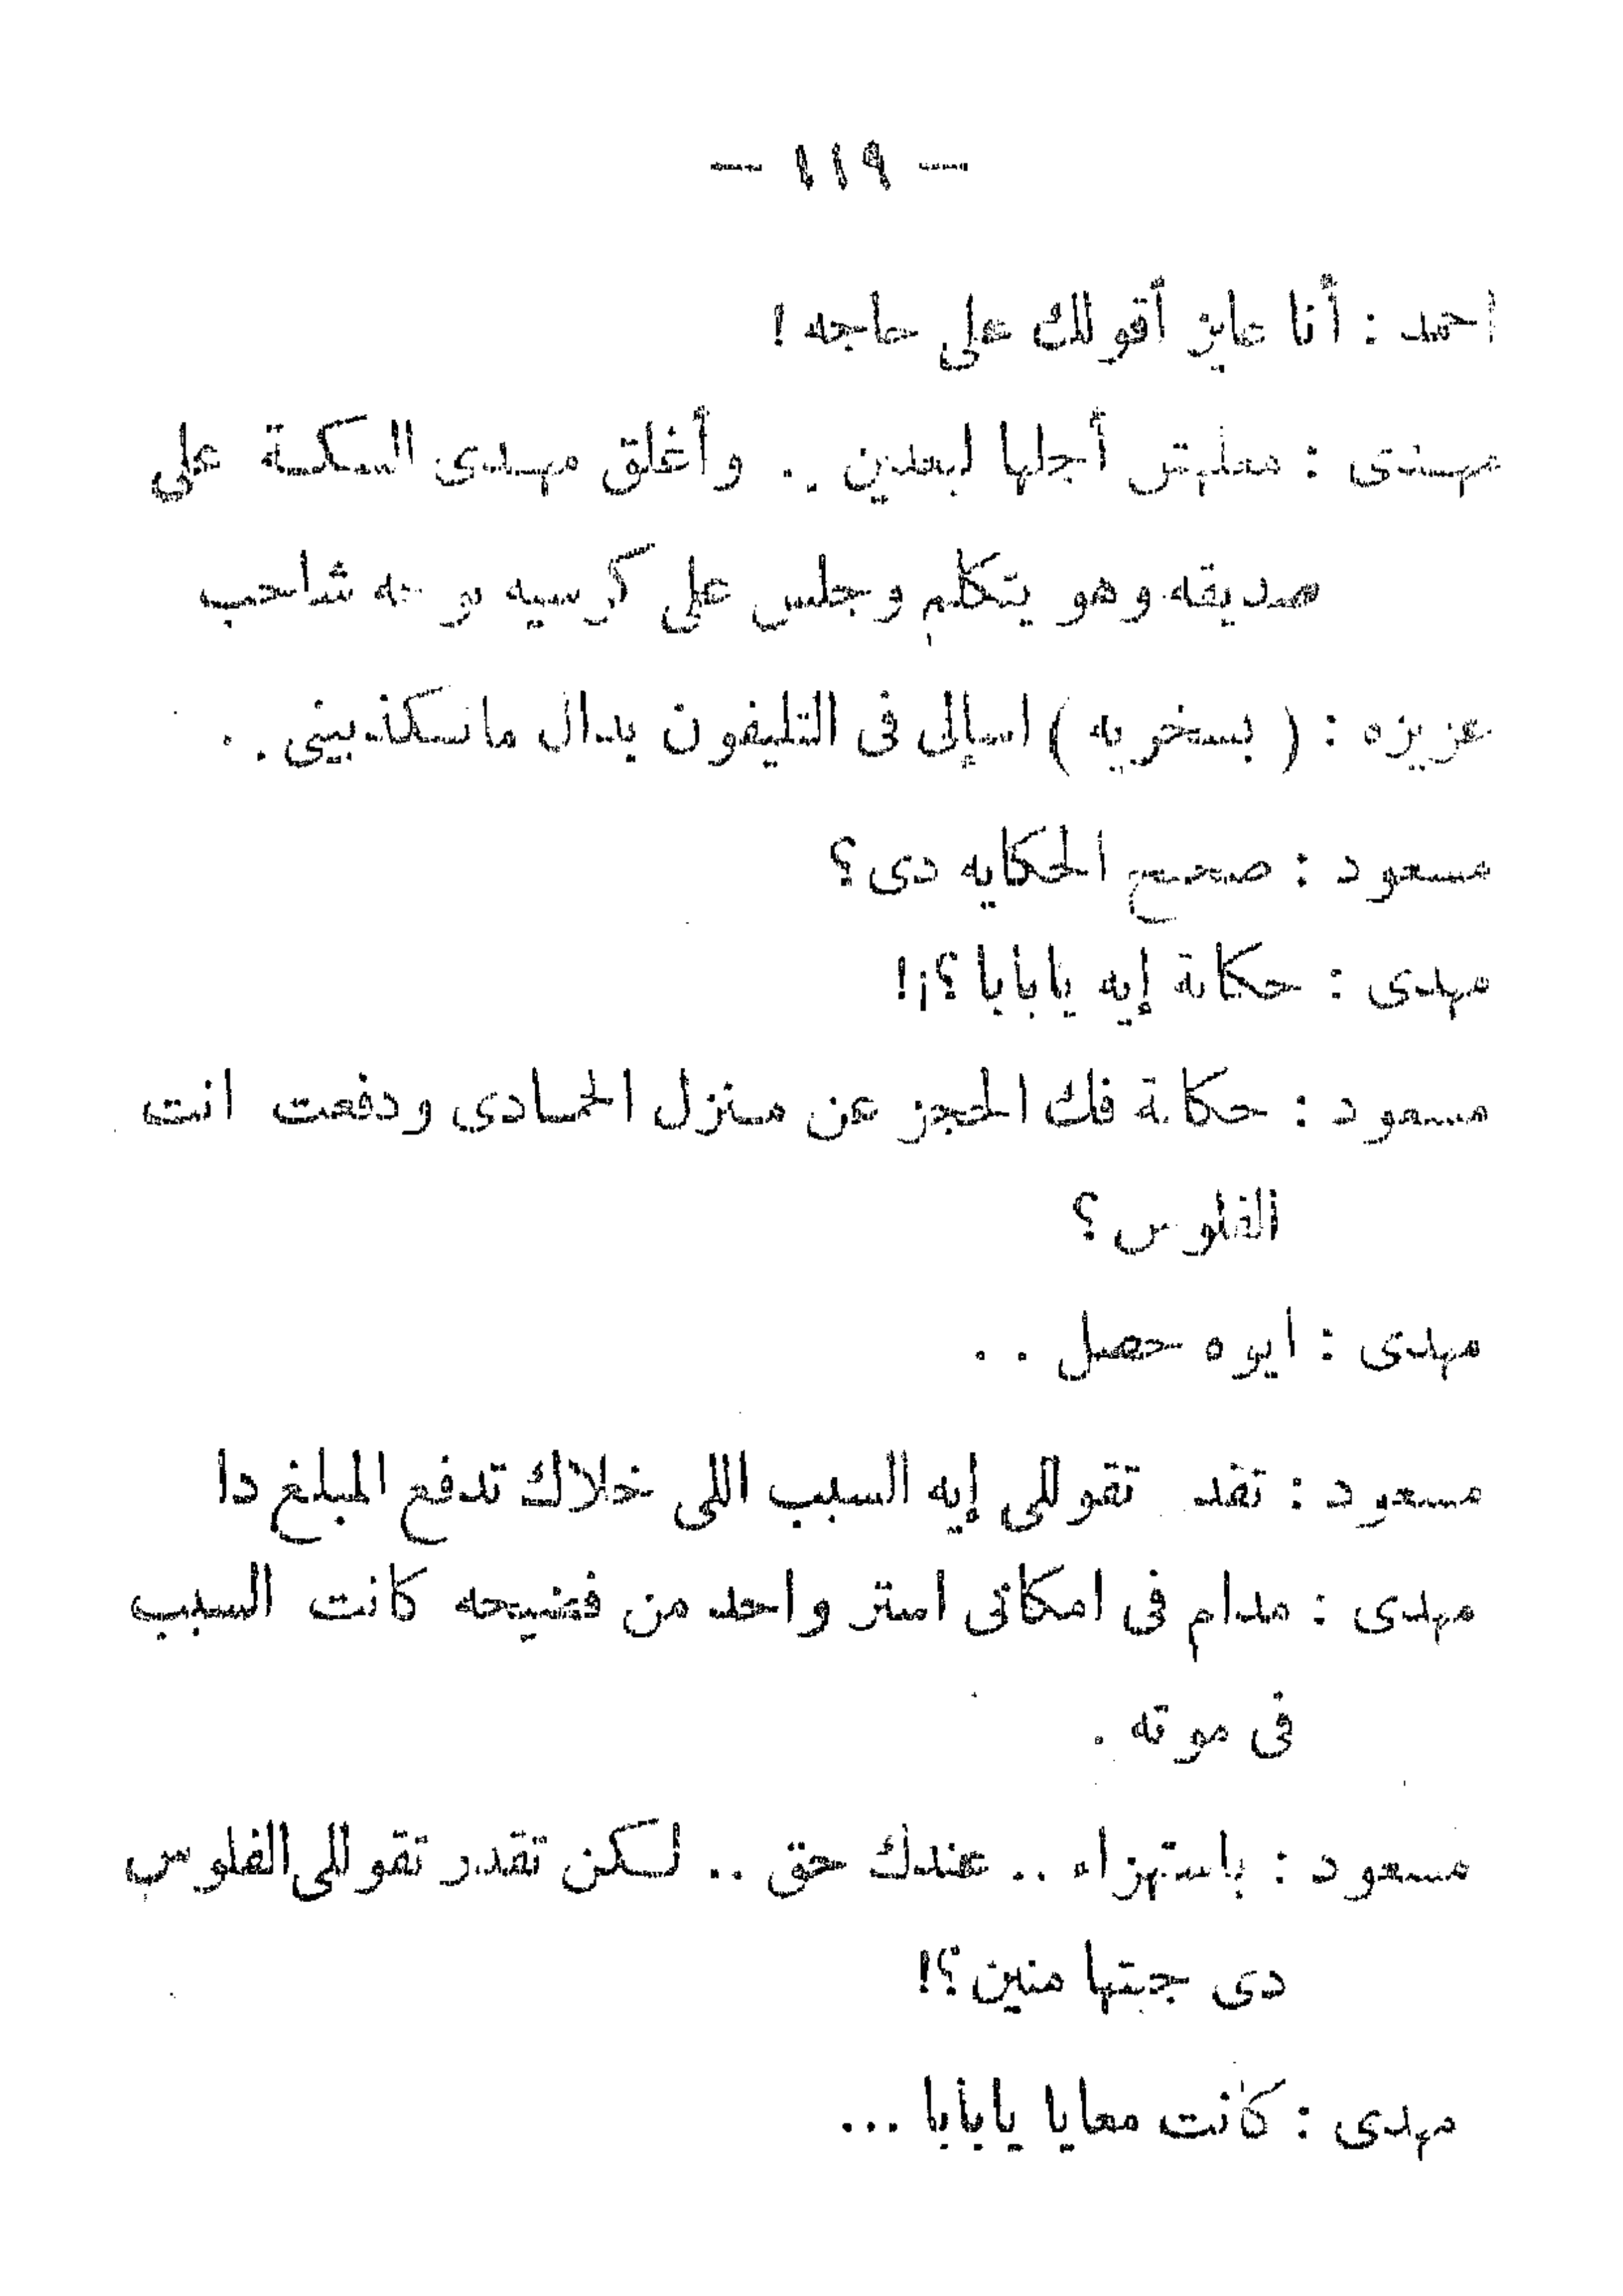 — ١١٩ —
احمد : أنا عايز أقولك على حاجه !
مهدى : معلهش أجلها لبعدين .. وأغلق مهدى السكة على
صديقه وهو يتكلم وجلس على كرسيه بوجه شاحب
عزيزه : ( بسخريه ) اسإلى فى التليفون بدال ماتكذبينى ..
مسعود : صحيح الحكايه دى ؟
مهدى : حكاية إيه يابابا ؟!!
مسعود : حكاية فك الحجز عن منزل الحمادى ودفعت انت
الفلوس ؟
مهدى : ايوه حصل ..
مسعود : تقدر تقوللى إيه السبب اللى خلاك تدفع المبلغ دا
مهدى : مدام فى امكانى استر واحد من فضيحه كانت السبب
فى موته .
مسعود : باستهزاء .. عندك حق .. لكن تقدر تقوللى الفلوس
دى جبتها منين ؟!
مهدى : كانت معايا يابابا ...